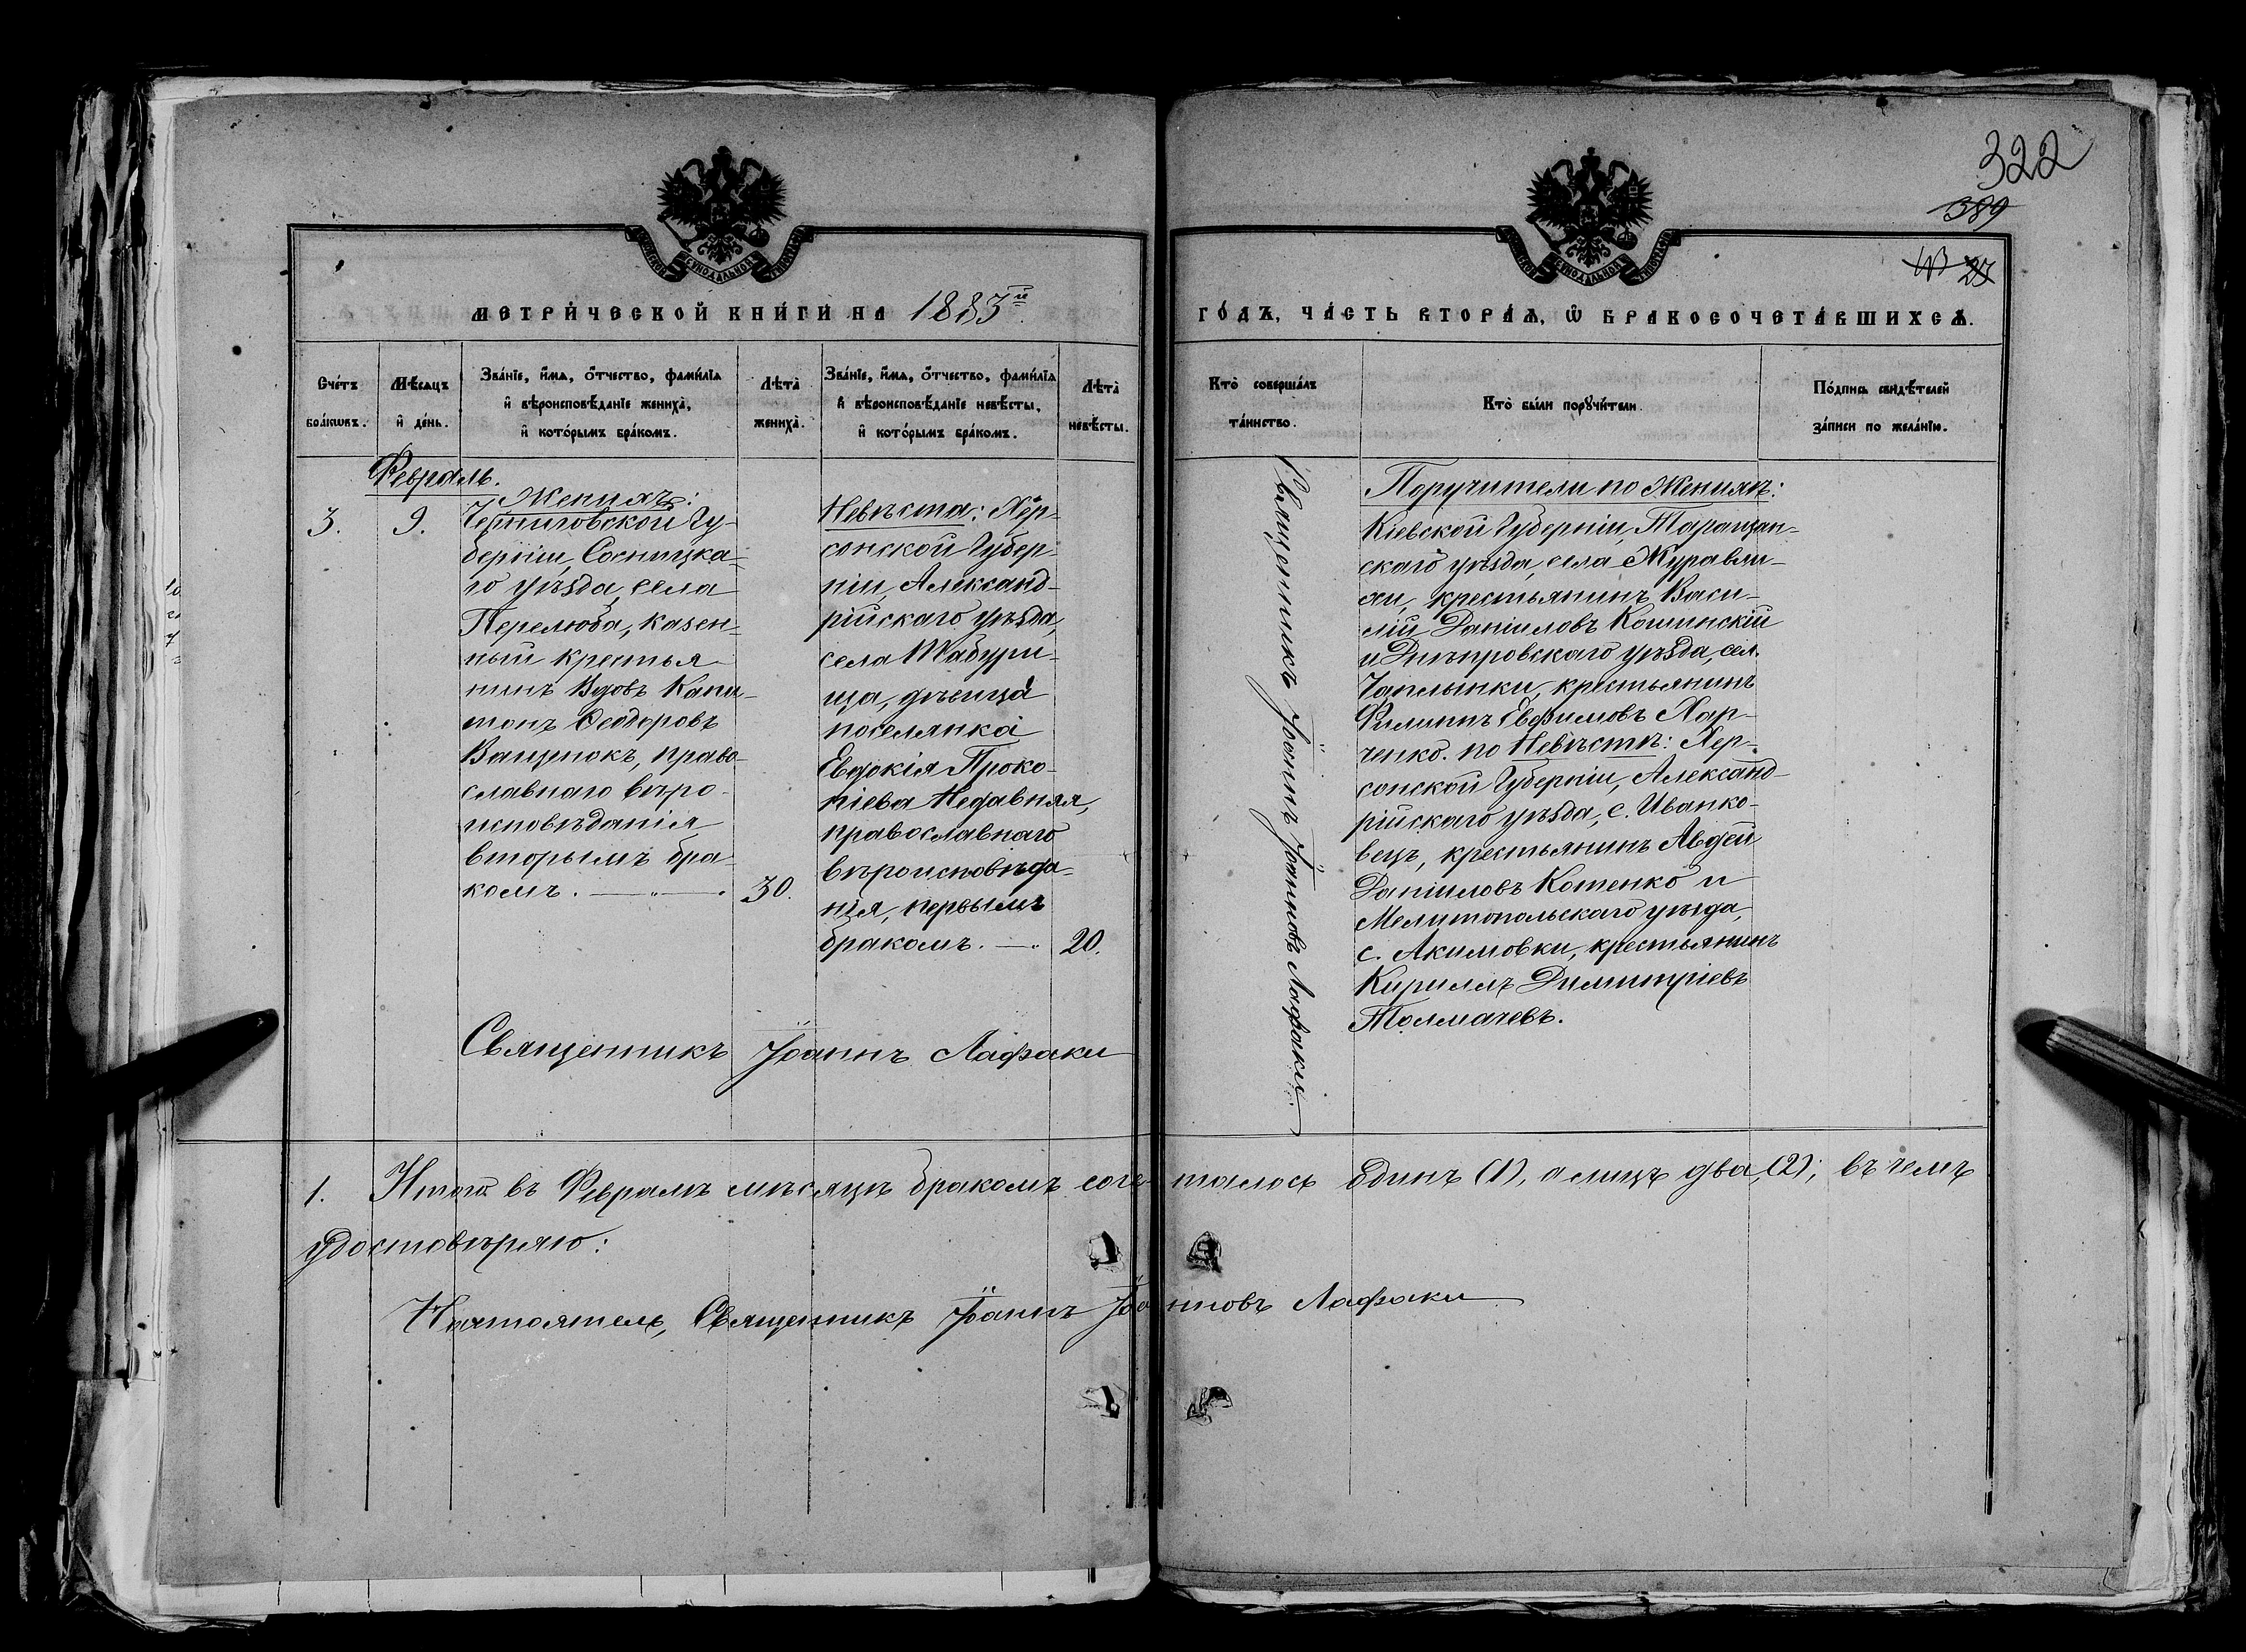 322
389
27
МЕТРИЧЕСКОЙ КНИГИ НА 1883й
ГОДЪ, ЧАСТЬ ВТОРАѦ, Ѿ БРАКОСОЧЕТАВШИХСѦ.
Счетъ браковъ.
Мѣсяцъ и день.
Званіе, имя, отчество, фамилія
и вѣроисповѣданіе жениха,
и которымъ бракомъ.
Лѣта
жениха.
Званіе, имя, отчество, фамилія
и вѣроисповѣданіе невѣсты,
и которымъ бракомъ.
Лѣта
невѣсты.
Кто совершалъ
таинство.
Кто были поручители.
Подпись свидѣтелей
записи по желанію.
Февраль.
3.
9.
Женихъ:
Черниговской Гу-
берніи, Сосницка-
го уѣзда, села
Перелюба, казен-
ный крестья-
нинъ Вдовъ Капи-
тонъ Ѳеодоровъ
Ващенокъ, право-
славнаго вѣро-
исповѣданія
вторымъ бра-
комъ. —„—.
30.
Невѣста: Хер-
сонской Губер-
ніи, Александ-
рійскаго уѣзда,
села Табури-
ща, дѣвица
поселянка
Евдокія Проко-
піева Недавняя,
православнаго
вѣроисповѣда-
нія, первымъ
бракомъ. —„
20.
Священникъ Іоаннъ Лафаки
Священникъ Іоаннъ Іоанновъ Лафаки.
Поручители по Женихѣ:
Кіевской Губерніи, Таращан-
скаго уѣзда, села Журавли-
хи, крестьянинъ Васи-
лій Даніиловъ Кошинскій
и Днѣпровскаго уѣзда, сел.
Чаплынки, крестьянинъ
Филиппъ Евфимовъ Хар-
ченко. по Невѣстѣ: Хер-
сонской Губерніи, Александ-
рійскаго уѣзда, с. Иванко-
вецъ, крестьянинъ Авдей
Даніиловъ Котенко и
Мелитопольскаго уѣзда,
с. Акимовки, крестьянинъ
Кириллъ Димитріевъ
Толмачевъ.
1. Итого въ Февралѣ мѣсяцѣ бракомъ сочеталось одинъ (1), а лицъ два, (2); въ чемъ
удостовѣряю:
Настоятель, Священникъ Іоаннъ Іоанновъ Лафаки